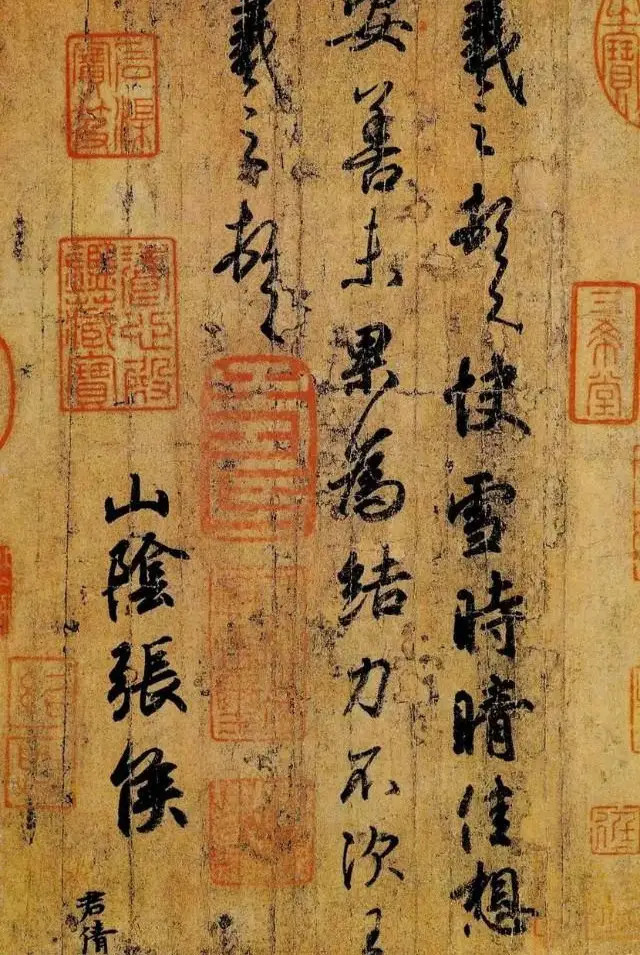 三希堂
羲之頓首快雪時晴佳想
安善未果為結力不次王
羲之頓首
山陰張侯
君倩
石渠
寶笈
養心殿
鑑藏寶